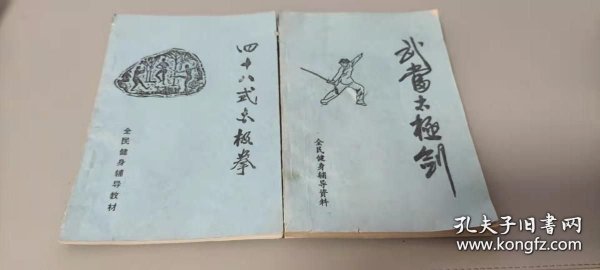 四十八式太极拳
全民健身辅导教材
武当太極剑
全民健身辅导资料
孔夫子旧书网
www.kongfz.com